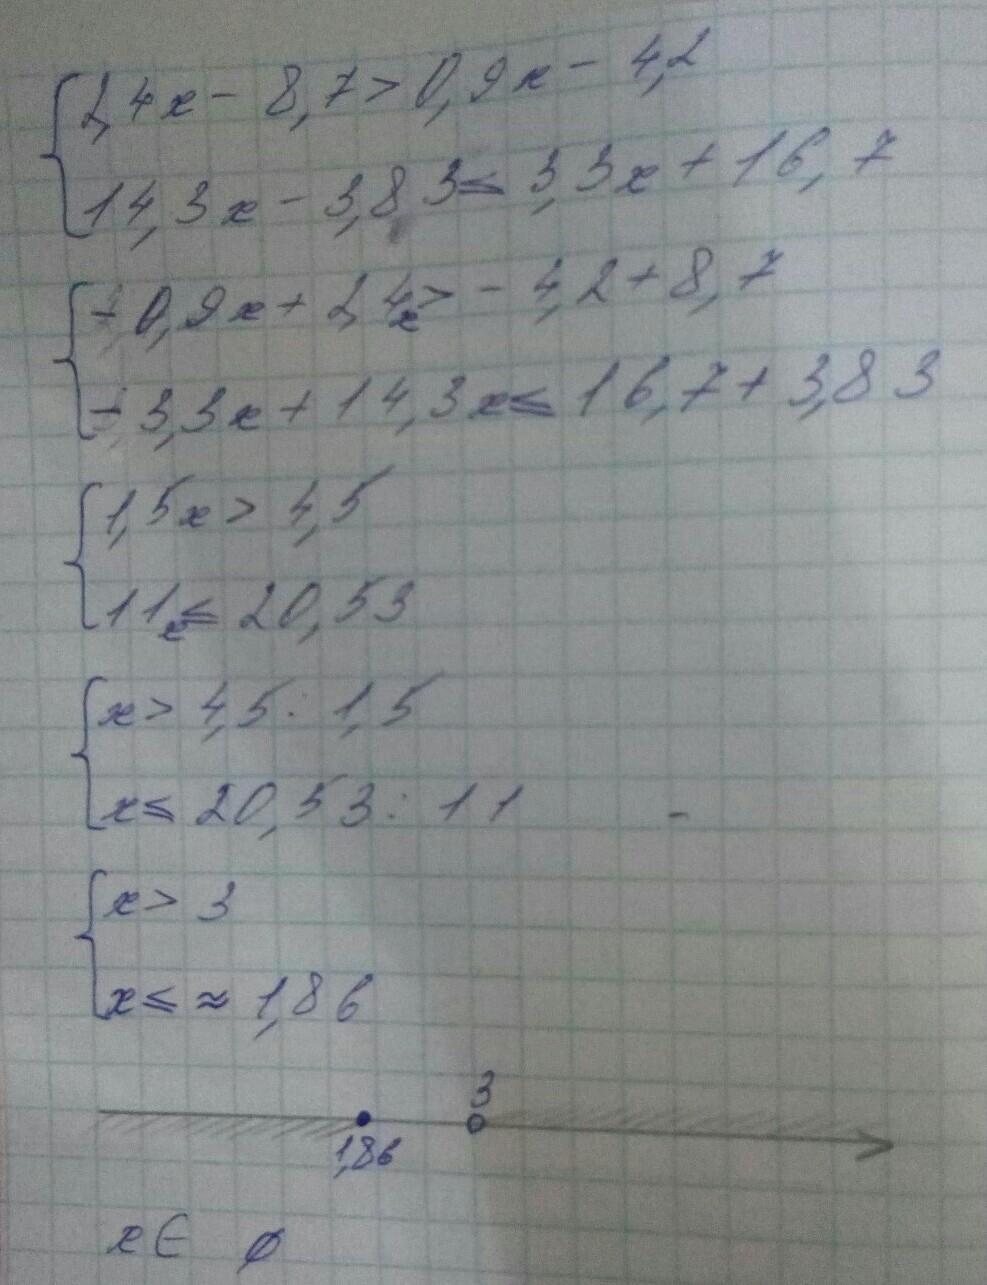 2,4x - 8,7 > 0,9x - 4,2
14,3x - 3,83 ≤ 3,3x + 16,7
- 0,9x + 2,4x > - 4,2 + 8,7
- 3,3x + 14,3x ≤ 16,7 + 3,83
1,5x > 4,5
11x ≤ 20,53
x > 4,5 : 1,5
x ≤ 20,53 : 11 -
x > 3
x ≤ ≈ 1,86
3
1,86
x ∈ ∅